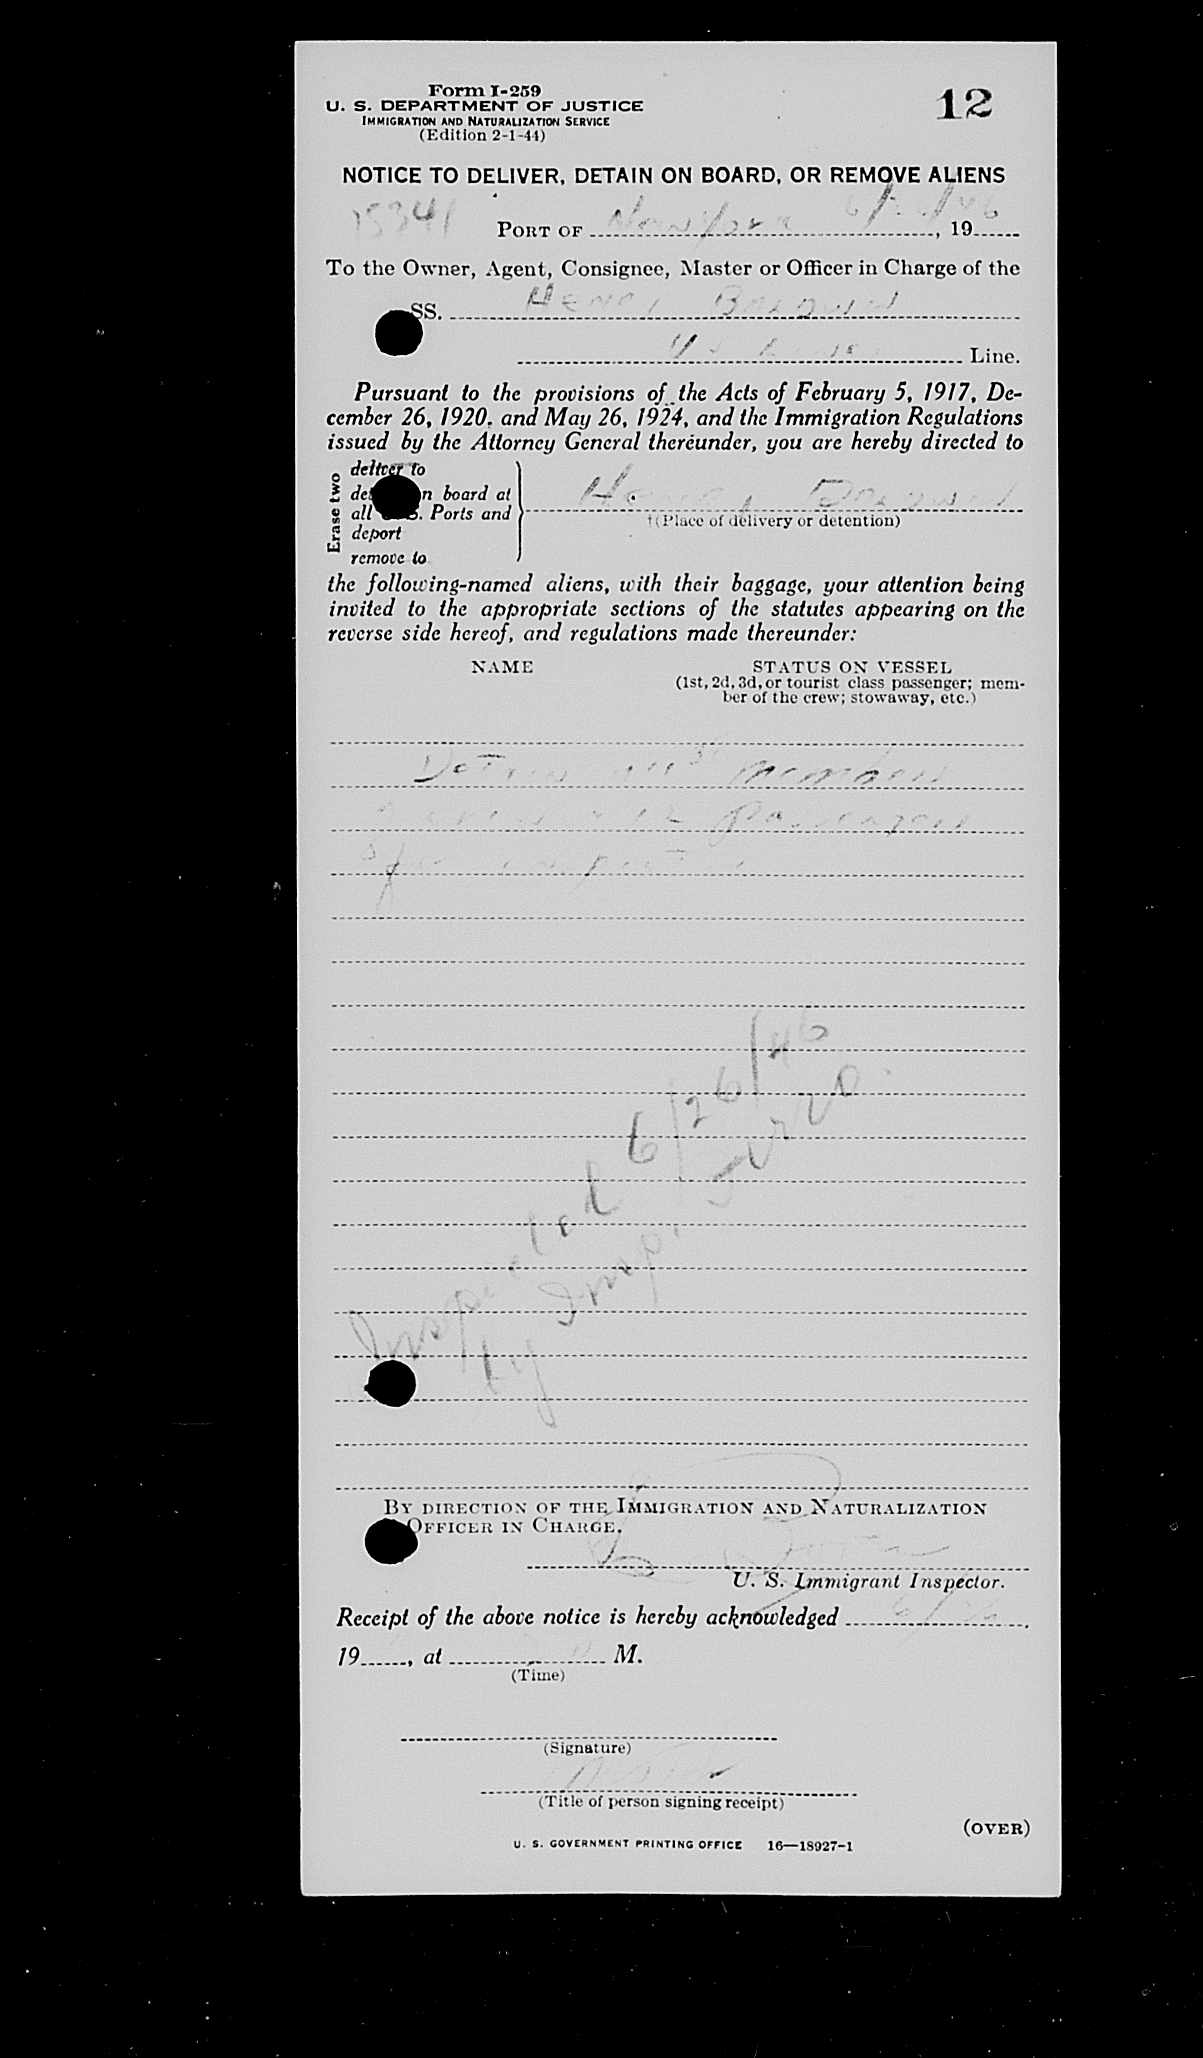 Form I-259
U. S. DEPARTMENT OF JUSTICE
IMMIGRATION AND NATURALIZATION SERVICE
(Edition 2-1-44)
12
NOTICE TO DELIVER, DETAIN ON BOARD, OR REMOVE ALIENS
15341
PORT OF New York 6/26/46, 19
To the Owner, Agent, Consignee, Master or Officer in Charge of the
SS. Henry Baldwin
Line.
Pursuant to the provisions of the Acts of February 5, 1917, De-
cember 26, 1920, and May 26, 1924, and the Immigration Regulations
issued by the Attorney General thereunder, you are hereby directed to
Erase two
deliver to
n board at
all S. Ports and
deport
remove to
Henry Baldwin
†(Place of delivery or detention)
the following-named aliens, with their baggage, your attention being
invited to the appropriate sections of the statutes appearing on the
reverse side hereof, and regulations made thereunder:
NAME
STATUS ON VESSEL
(1st, 2d, 3d, or tourist class passenger; mem-
ber of the crew; stowaway, etc.)
Detain all members
crew passengers
for inspection
Inspected 6/26/46
by Insp.
BY DIRECTION OF THE IMMIGRATION AND NATURALIZATION
OFFICER IN CHARGE.
U. S. Immigrant Inspector.
Receipt of the above notice is hereby acknowledged 6/26,
19, at M.
(Time)
(Signature)
(Title of person signing receipt)
(OVER)
U. S. GOVERNMENT PRINTING OFFICE 16—18927-1